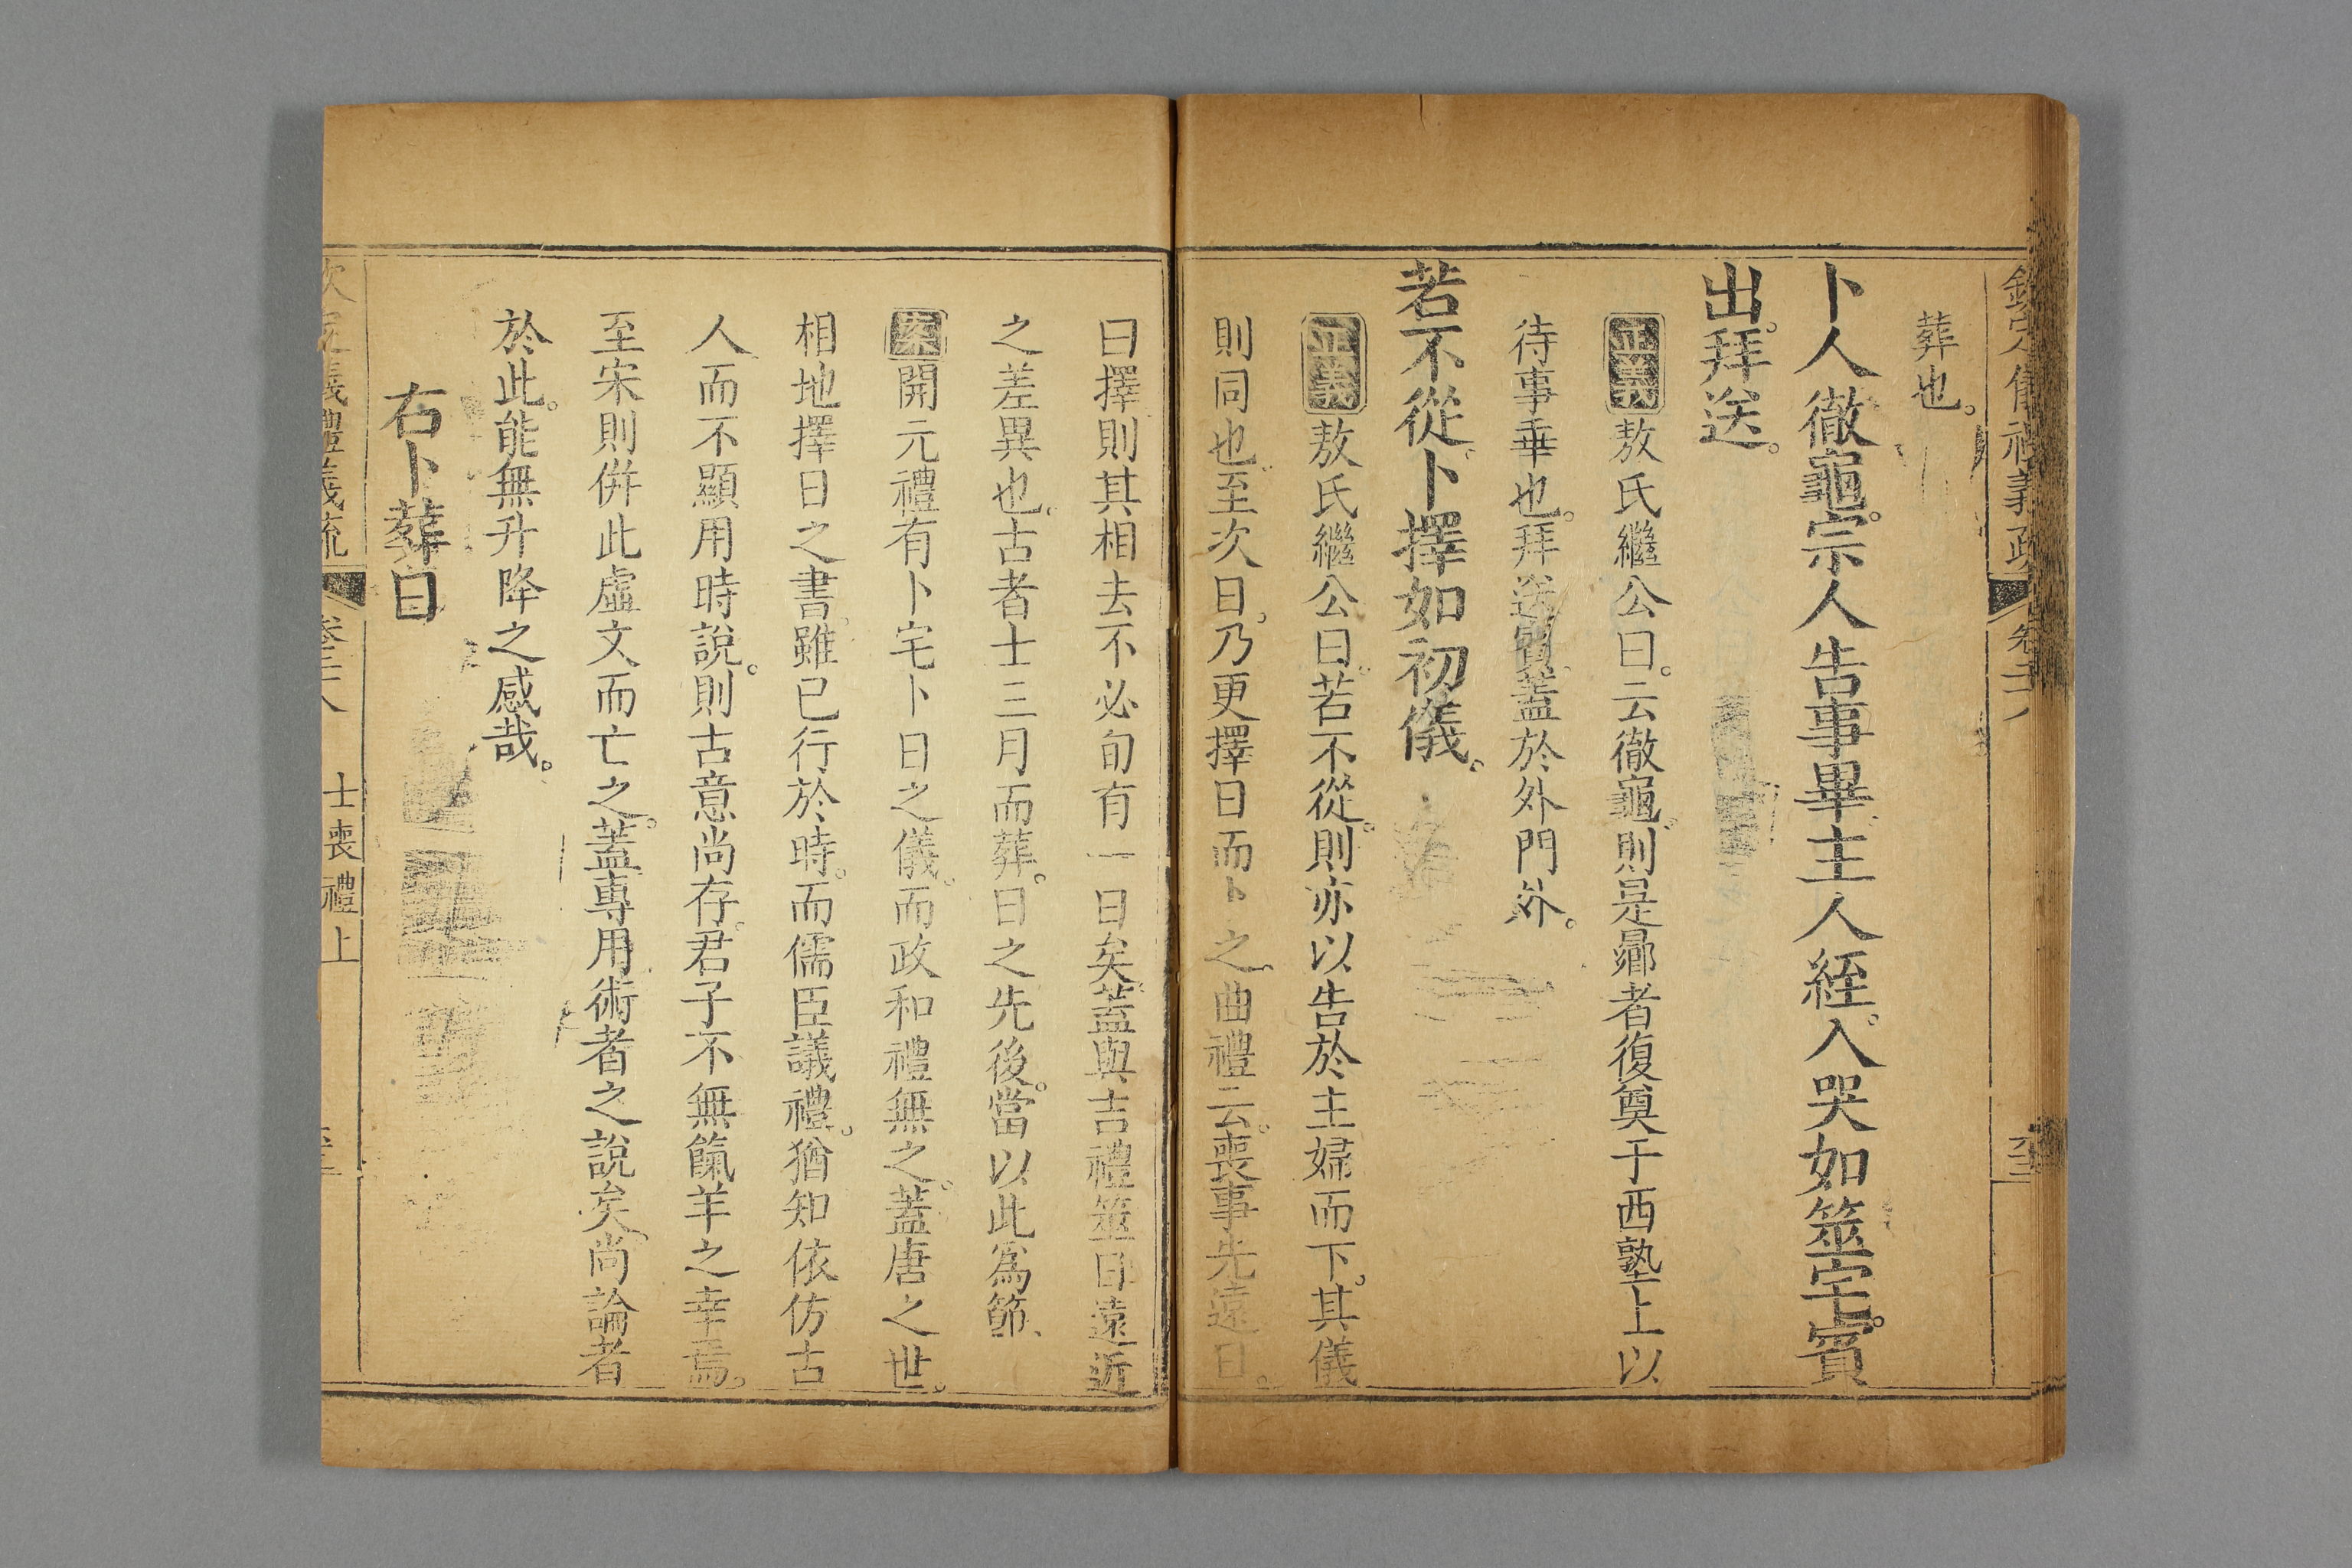 葬也。
卜人徹龜。宗人告事畢主人絰。入哭如筮宅。賓
出。拜送。
正義敖氏繼公曰。云徹龜。則是曏者復奠于西塾上以
待事畢也。拜送賓。蓋於外門外。
若不從。卜擇如初儀。
正義敖氏繼公曰。若不從。則亦以告於主婦而下。其儀
則同也。至次日。乃更擇日而卜之。曲禮云。喪事先遠日。
曰擇則其相去不必旬有一日矣。蓋與吉禮筮日遠近
之差異也。古者士三月而葬。日之先後。當以此爲節、
案開元禮有卜宅卜日之儀。而政和禮無之。蓋唐之世。
相地擇日之書。雖已行於時。而儒臣議禮。猶知依仿古
人而不顯用時說。則古意尚存。君子不無餼羊之幸焉。
至宋則倂此虛文而亡之。蓋專用術者之說矣。尚論者
於此。能無升降之感哉。
右卜葬日
士喪禮上